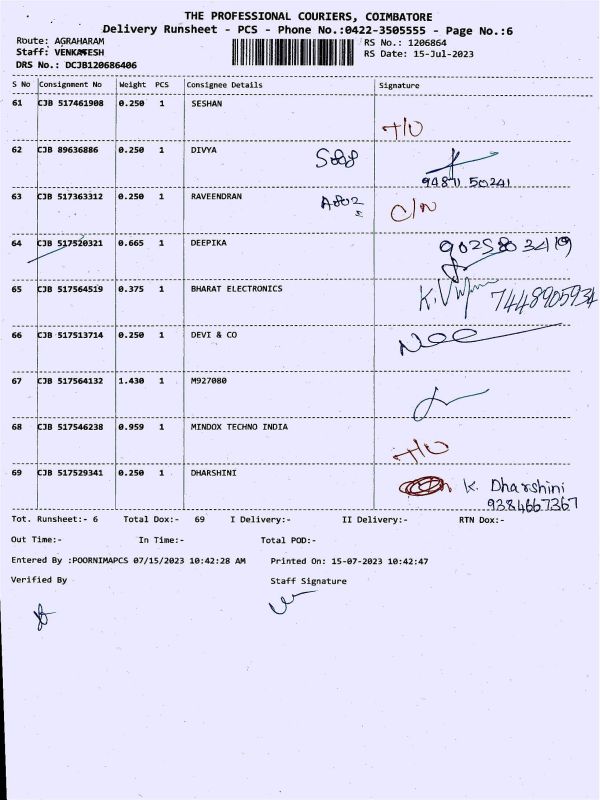 THE PROFESSIONAL COURIERS, COIMBATORE
Delivery Runsheet - PCS - Phone No.:0422-3505555 - Page No.:6
Route: AGRAHARAM RS No.: 1206864
Staff: VENKATESH RS Date: 15-Jul-2023
DRS No.: DCJB120686406
S No Consignment No Weight PCS Consignee Details Signature
61 CJB 517461908 0.250 1 SESHAN
62 CJB 89636886 0.250 1 DIVYA
94871 50241
63 CJB 517363312 0.250 1 RAVEENDRAN C/N
64 CJB 517520321 0.665 1 DEEPIKA 9025803419
65 CJB 517564519 0.375 1 BHARAT ELECTRONICS 7448905934
66 CJB 517513714 0.250 1 DEVI & CO
67 CJB 517564132 1.430 1 M927080
68 CJB 517546238 0.959 1 MINDOX TECHNO INDIA
69 CJB 517529341 0.250 1 DHARSHINI K. Dharshini
9384667367
Tot. Runsheet:- 6 Total Dox:- 69 I Delivery:- II Delivery:- RTN Dox:-
Out Time:- In Time:- Total POD:-
Entered By :POORNIMAPCS 07/15/2023 10:42:28 AM Printed On: 15-07-2023 10:42:47
Verified By Staff Signature